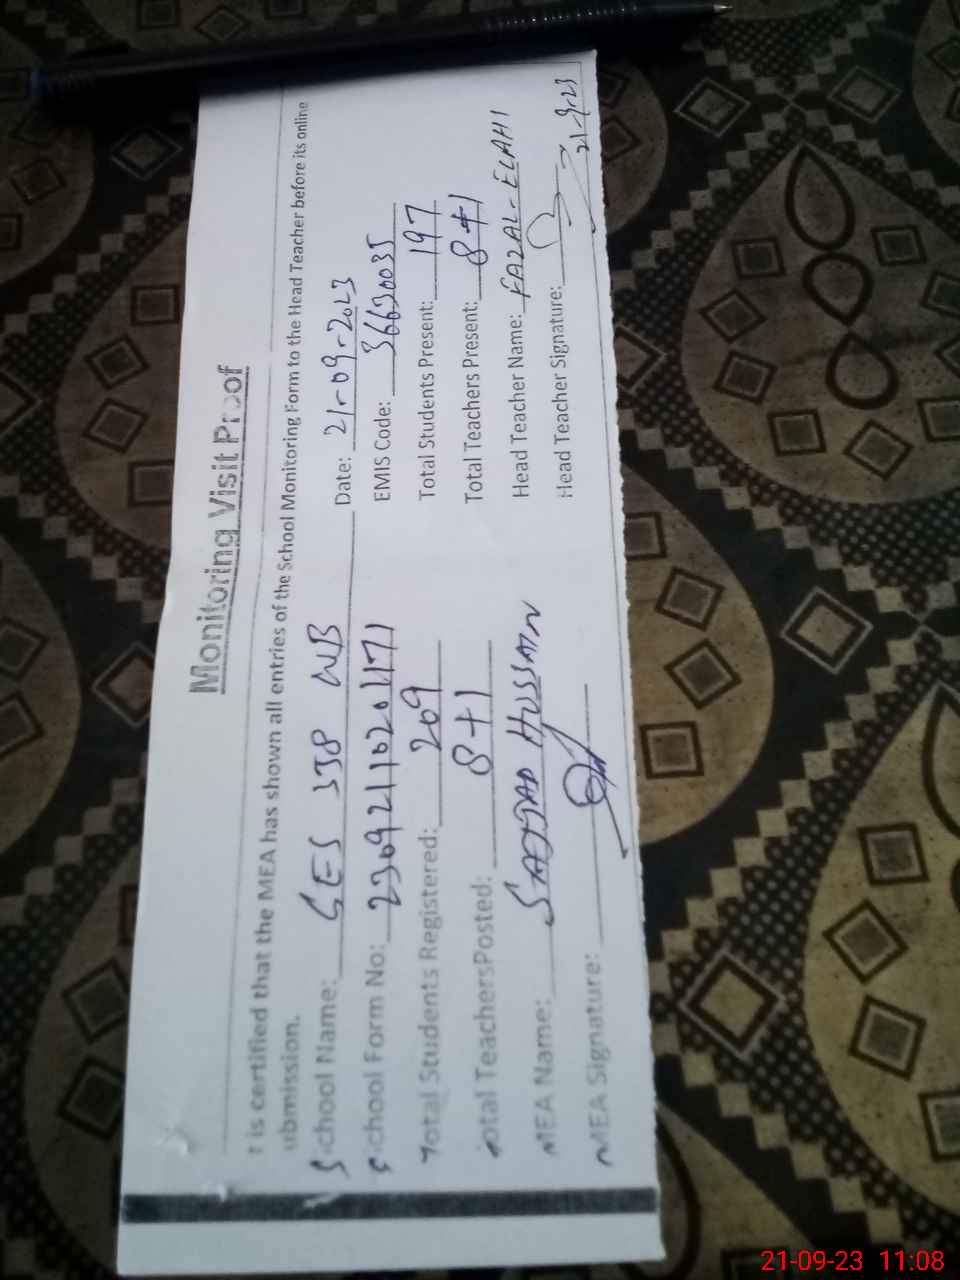 Monitoring Visit Proof
t is certified that the MEA has shown all entries of the School Monitoring Form to the Head Teacher before its online
ubmission.
School Name: GES 558 WB Date: 21-09-2023
School Form No: 23092110201171 EMIS Code: 36630035
Total Students Registered: 209 Total Students Present: 197
Total TeachersPosted: 8+1 Total Teachers Present: 8+1
MEA Name: SAJJAD HUSSAIN Head Teacher Name: FAZAL-ELAHI
MEA Signature: Head Teacher Signature:
21-9-23
21-09-23 11:08